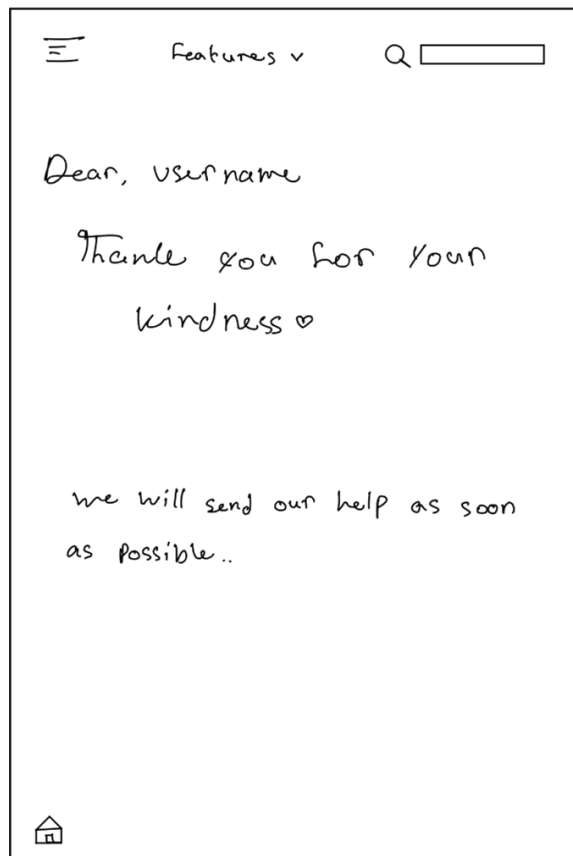 Features v
Dear, username
Thank you for your
kindness ♡
we will send our help as soon
as possible..